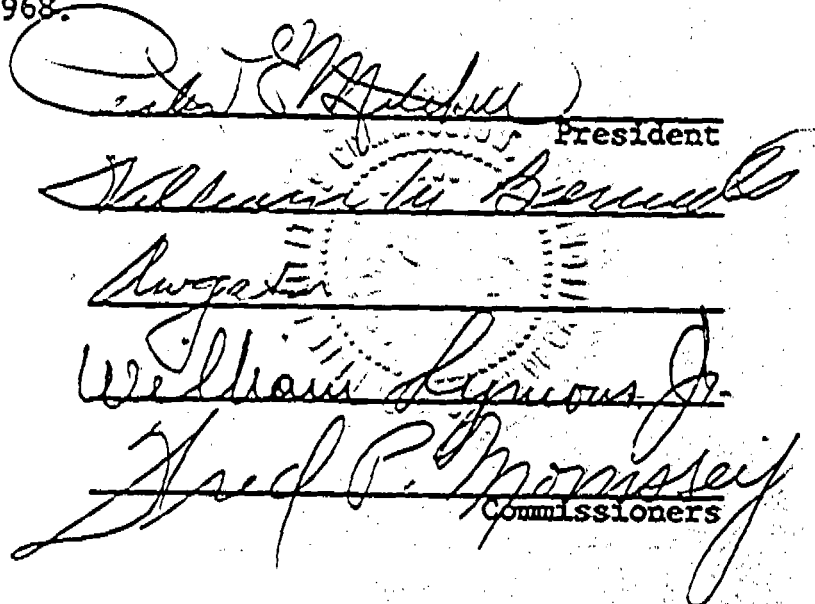 1968.
Peter E. Mitchell
President
William M. Bennett
William Symons Jr.
Fred P. Morrissey
Commissioners